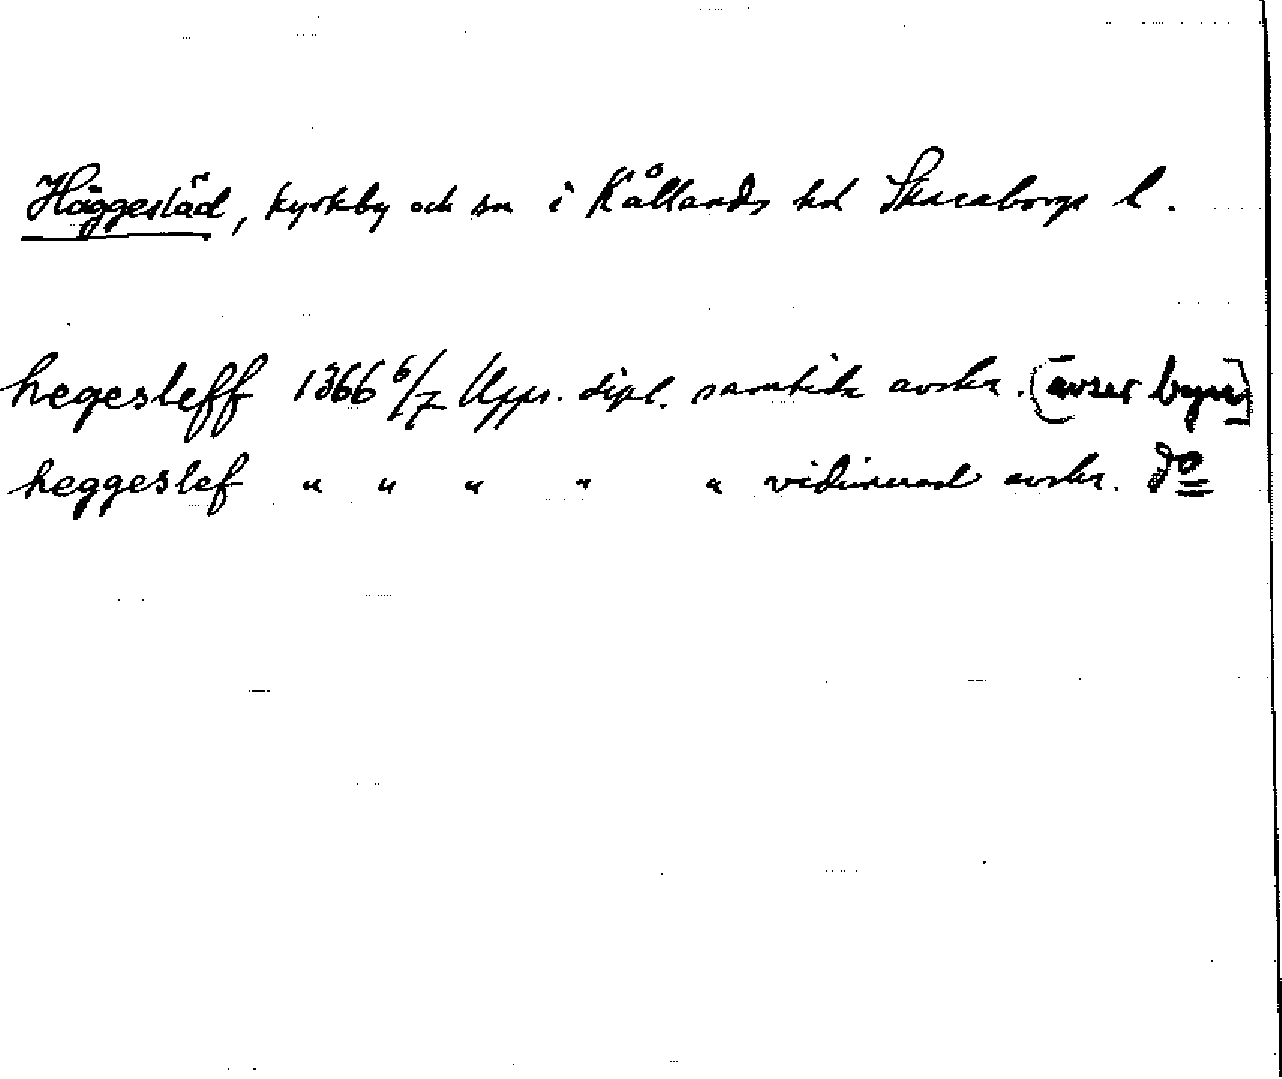 Häggesläd, kyrkby och sn i Kållands hd Skaraborgs l.
hegesleff 1366 6/7 Upps. dipl. samtida avskr. (avser byn)
heggeslef " " " " " vidimerad avskr. do